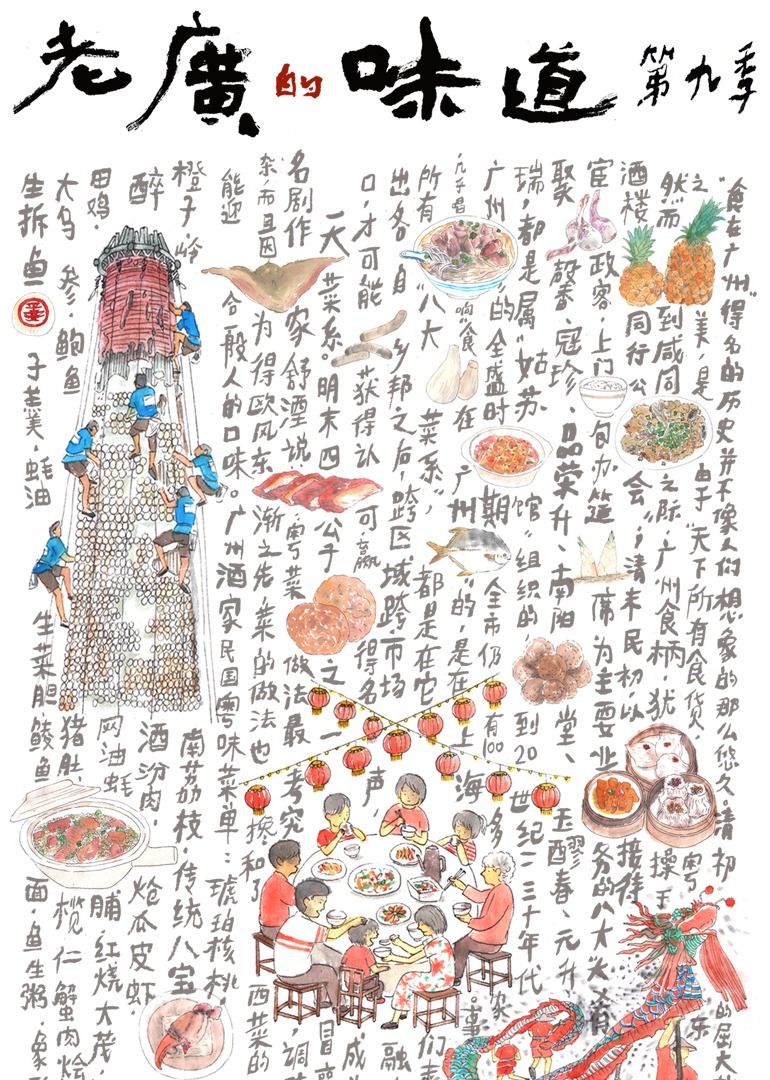 老廣的味道 第九季
"食在广州"得名的历史并不像人们想象的那么悠久,清初的屈大
之美,是由于"天下所有食货,粤东
然而到咸同之际,广州食柄,犹操于
酒楼同行公会",清末民初,以接待
宦政客,上门包办筵席为主要业务的八大大肴
聚馨、冠珍、品荣升、南阳堂、玉醪春、元升
瑞,都是属"姑苏馆"组织的,到20世纪二三十年代
广州的全盛时期,全市仍有100多家
几乎唱响"食在广州"的,是在上海。事
所有"八大菜系",都是在它们
出各自乡邦之后,跨区域跨市场融
口,才可能获得认可,赢得名声,成
一大菜系。明末四公子之一冒
名剧作家舒湮说:粤菜做法最考究,调
杂,而且因为得欧风东渐之先,菜的做法也掺和了西菜的
能迎合一般人的口味。广州酒家民国粤味菜单:琥珀核桃,
橙子,岭南荔枝,传统八宝
醉酒汾肉,炝瓜皮虾,
田鸡,网油蚝脯,红烧大茂,
大乌参,鲍鱼猪肚,榄仁蟹肉烩
生拆鱼子羹,蚝油生菜胆,鲮鱼面,鱼生粥,象形